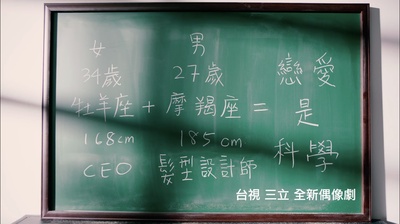 女 男
34歲 27歲
牡羊座 + 摩羯座 =
168cm 185cm
CEO 髮型設計師
戀愛
是
科學
台視 三立 全新偶像劇